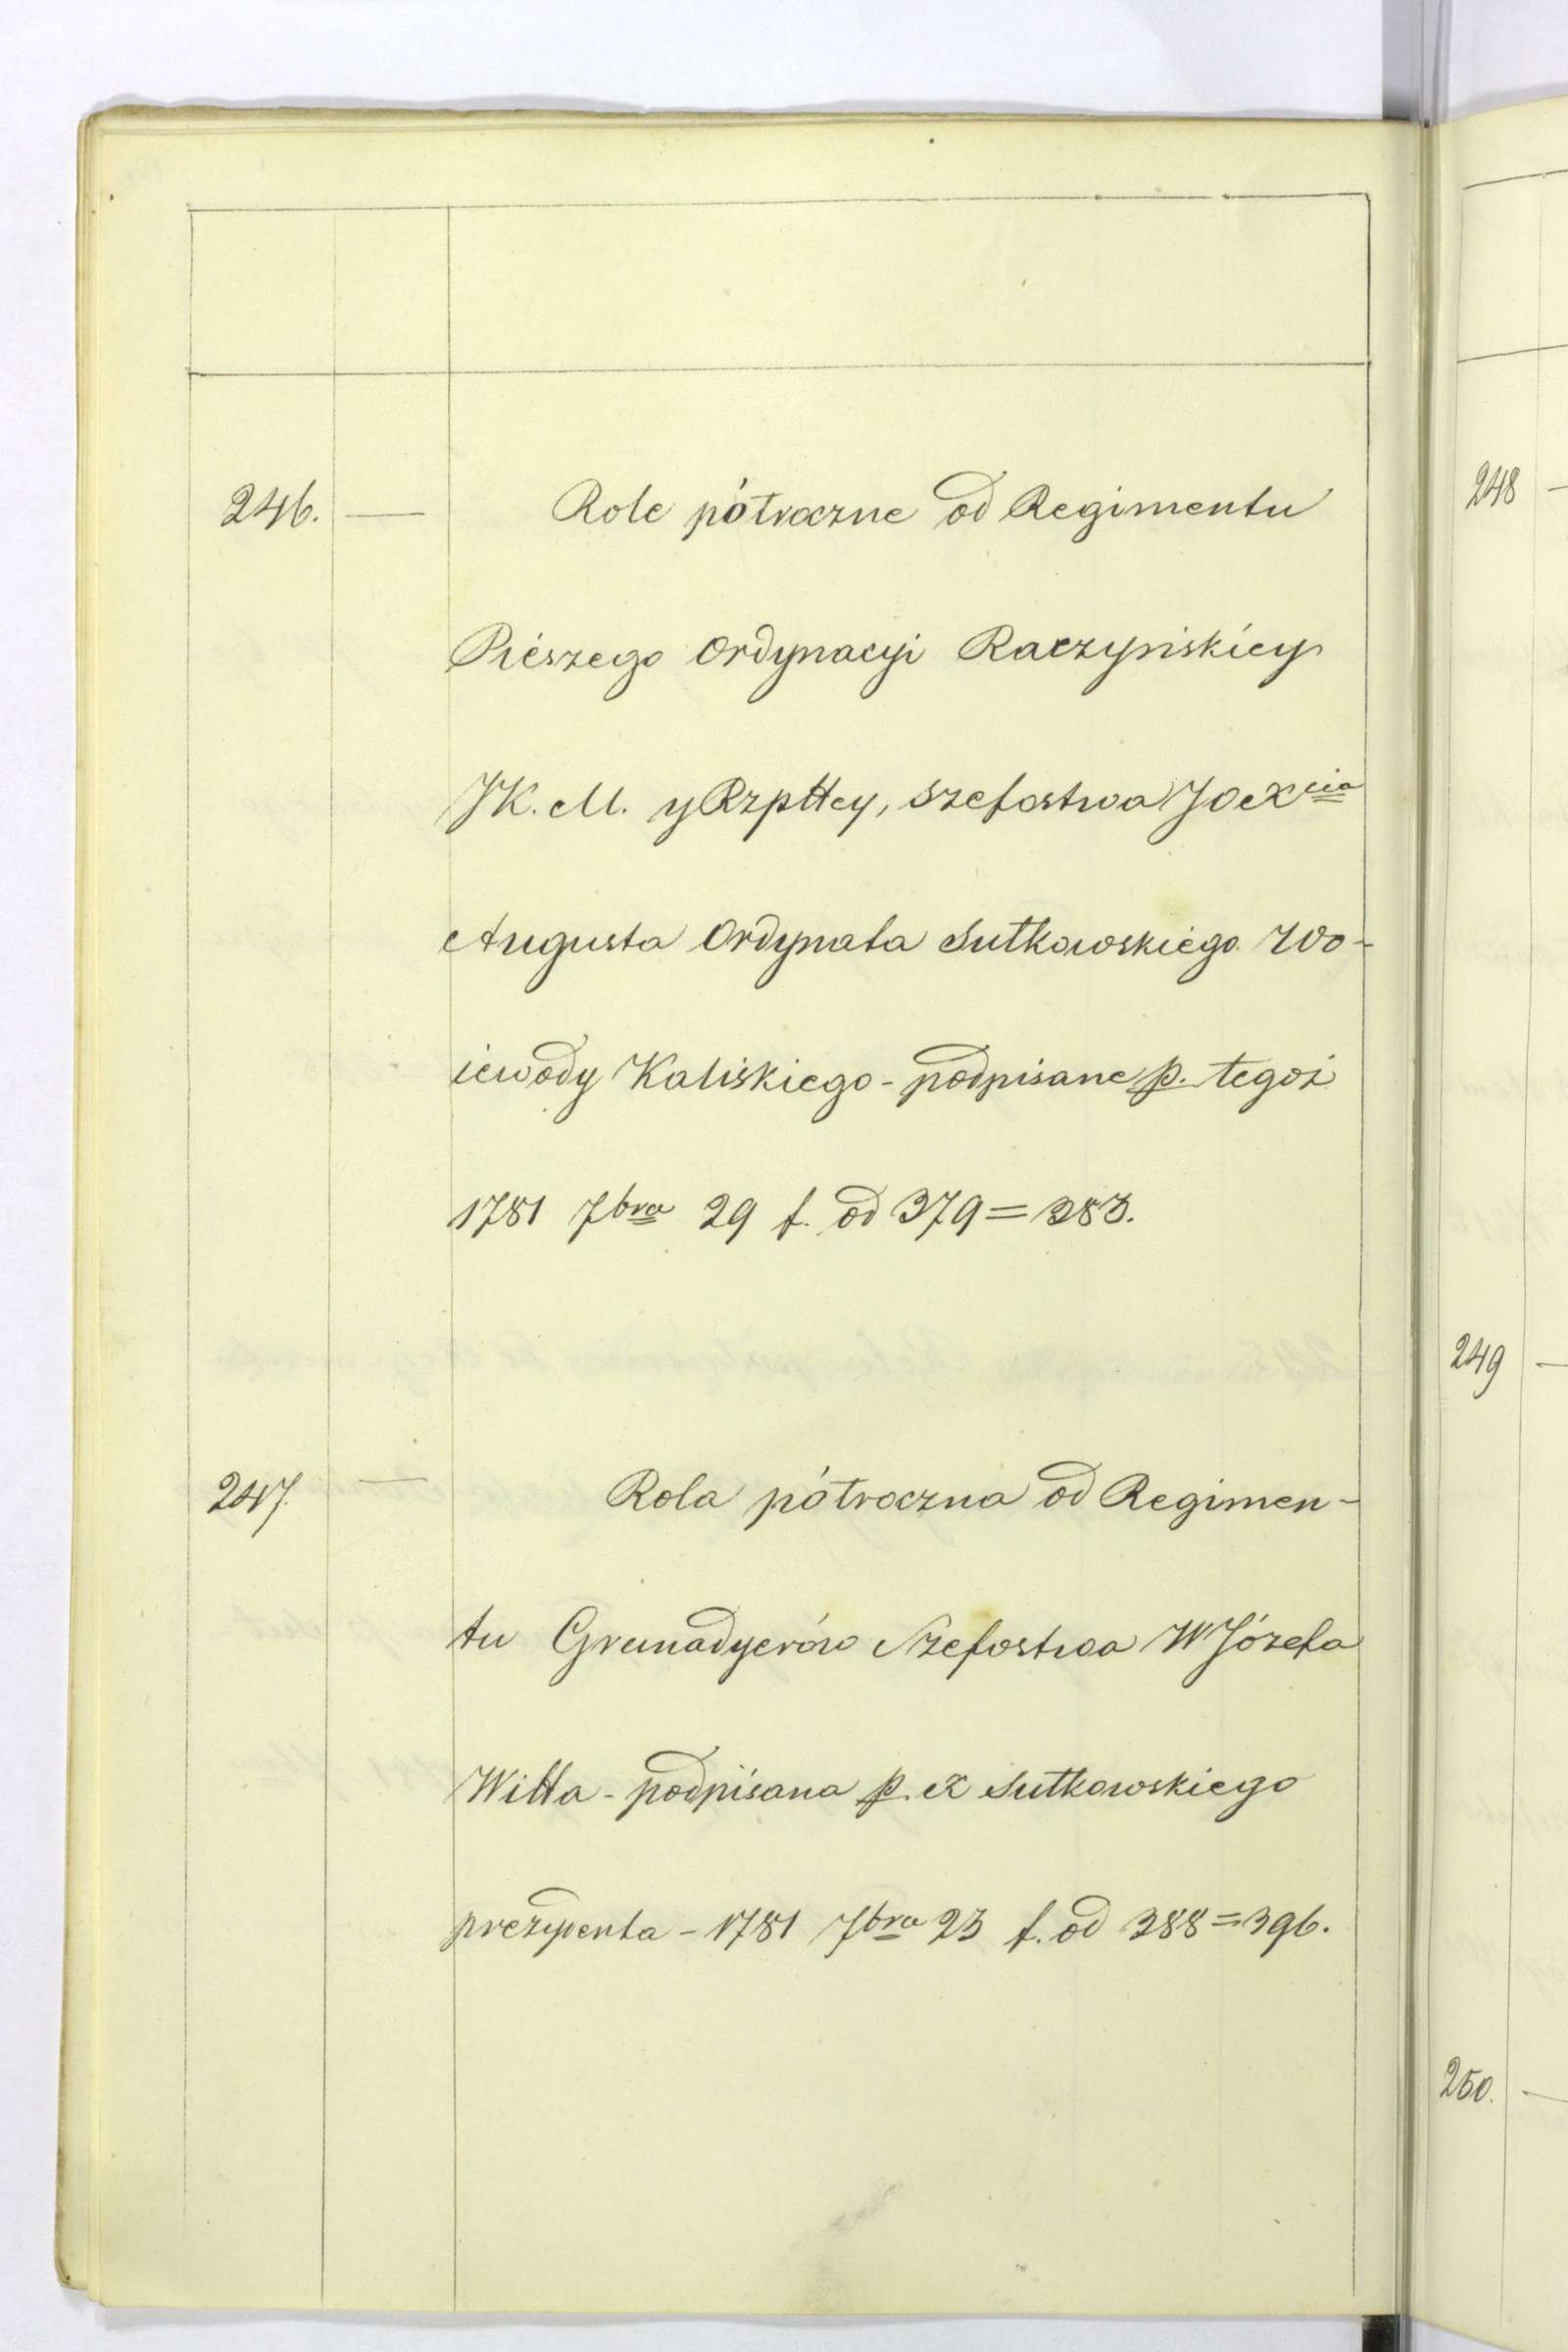 246. — Role półroczne od Regimentu
Piészego Ordynacyi Raczyńskiey
JK. M. y Rzpttey, Szefostwa JOX^cia
Augusta Ordynata Sułkowskiégo Wo-
iewody Kaliskiego - podpisane p. tegoż
1781 7^bra 29 f. od 379 = 383.
247. — Rola półroczna od Regimen-
tu Grenadyerów Szefostwa W Józefa
Witta - podpisana p. X Sułkowskiego
prezydenta - 1781 7^bra 23 f. od 388 = 396.
248 —
249 —
250. —